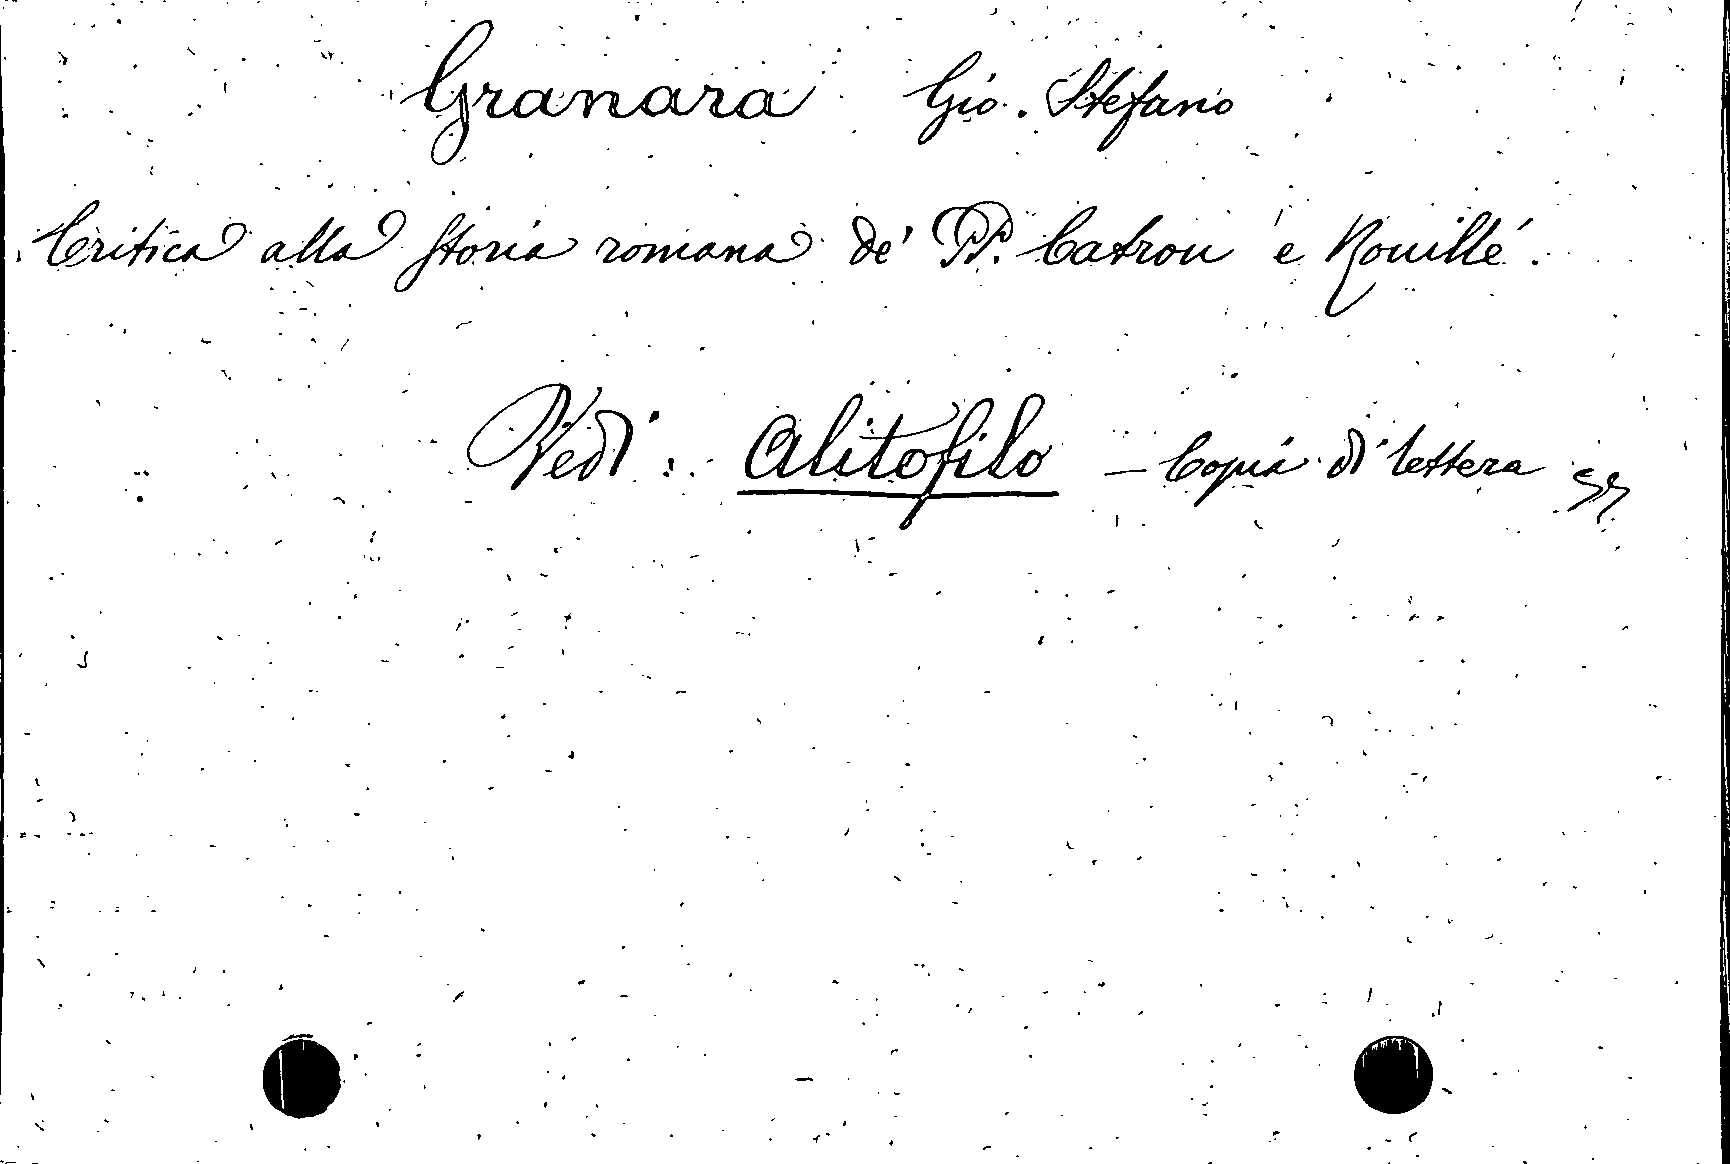 Granara Gio. Stefano
Critica alla storia romana de' PP. Catrou e Rouillé.
Vedi: Alitofilo - Copia di lettera